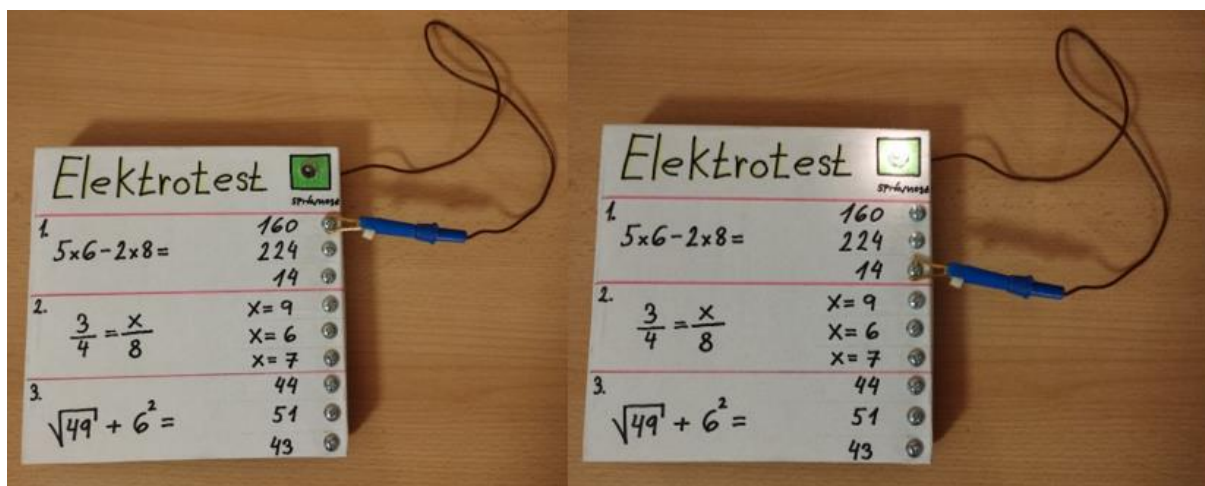 Elektrotest
1.
5×6-2×8=
160
224
14
2.
3/4 = x/8
x=9
x=6
x=7
3.
√49 + 6² =
44
51
43
Elektrotest
1.
5×6-2×8=
160
224
14
2.
3/4 = x/8
x=9
x=6
x=7
3.
√49 + 6² =
44
51
43